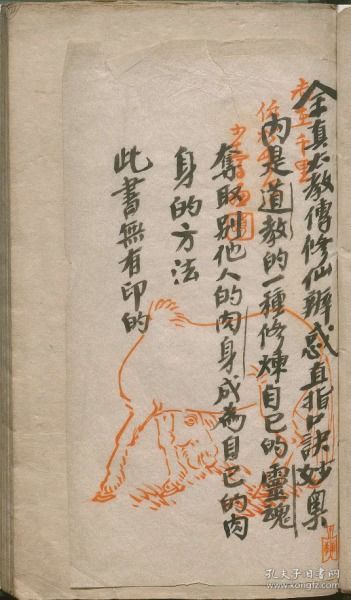 全真大教傳修仙辨惑直指口訣妙奧
內是道教的一種修煉自己的靈魂
奪取別他人的肉身成為自己的肉
身的方法
此書無有印的
孔夫子旧书网